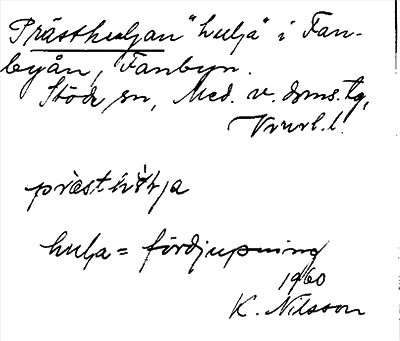 Prästhuljan "hulja" i Fan-
byån, Fanbyn.
Stöde sn, Med. v. doms. tg,
Vnrl. l.
prästhulja
hulja = fördjupning
1960
K. Nilsson